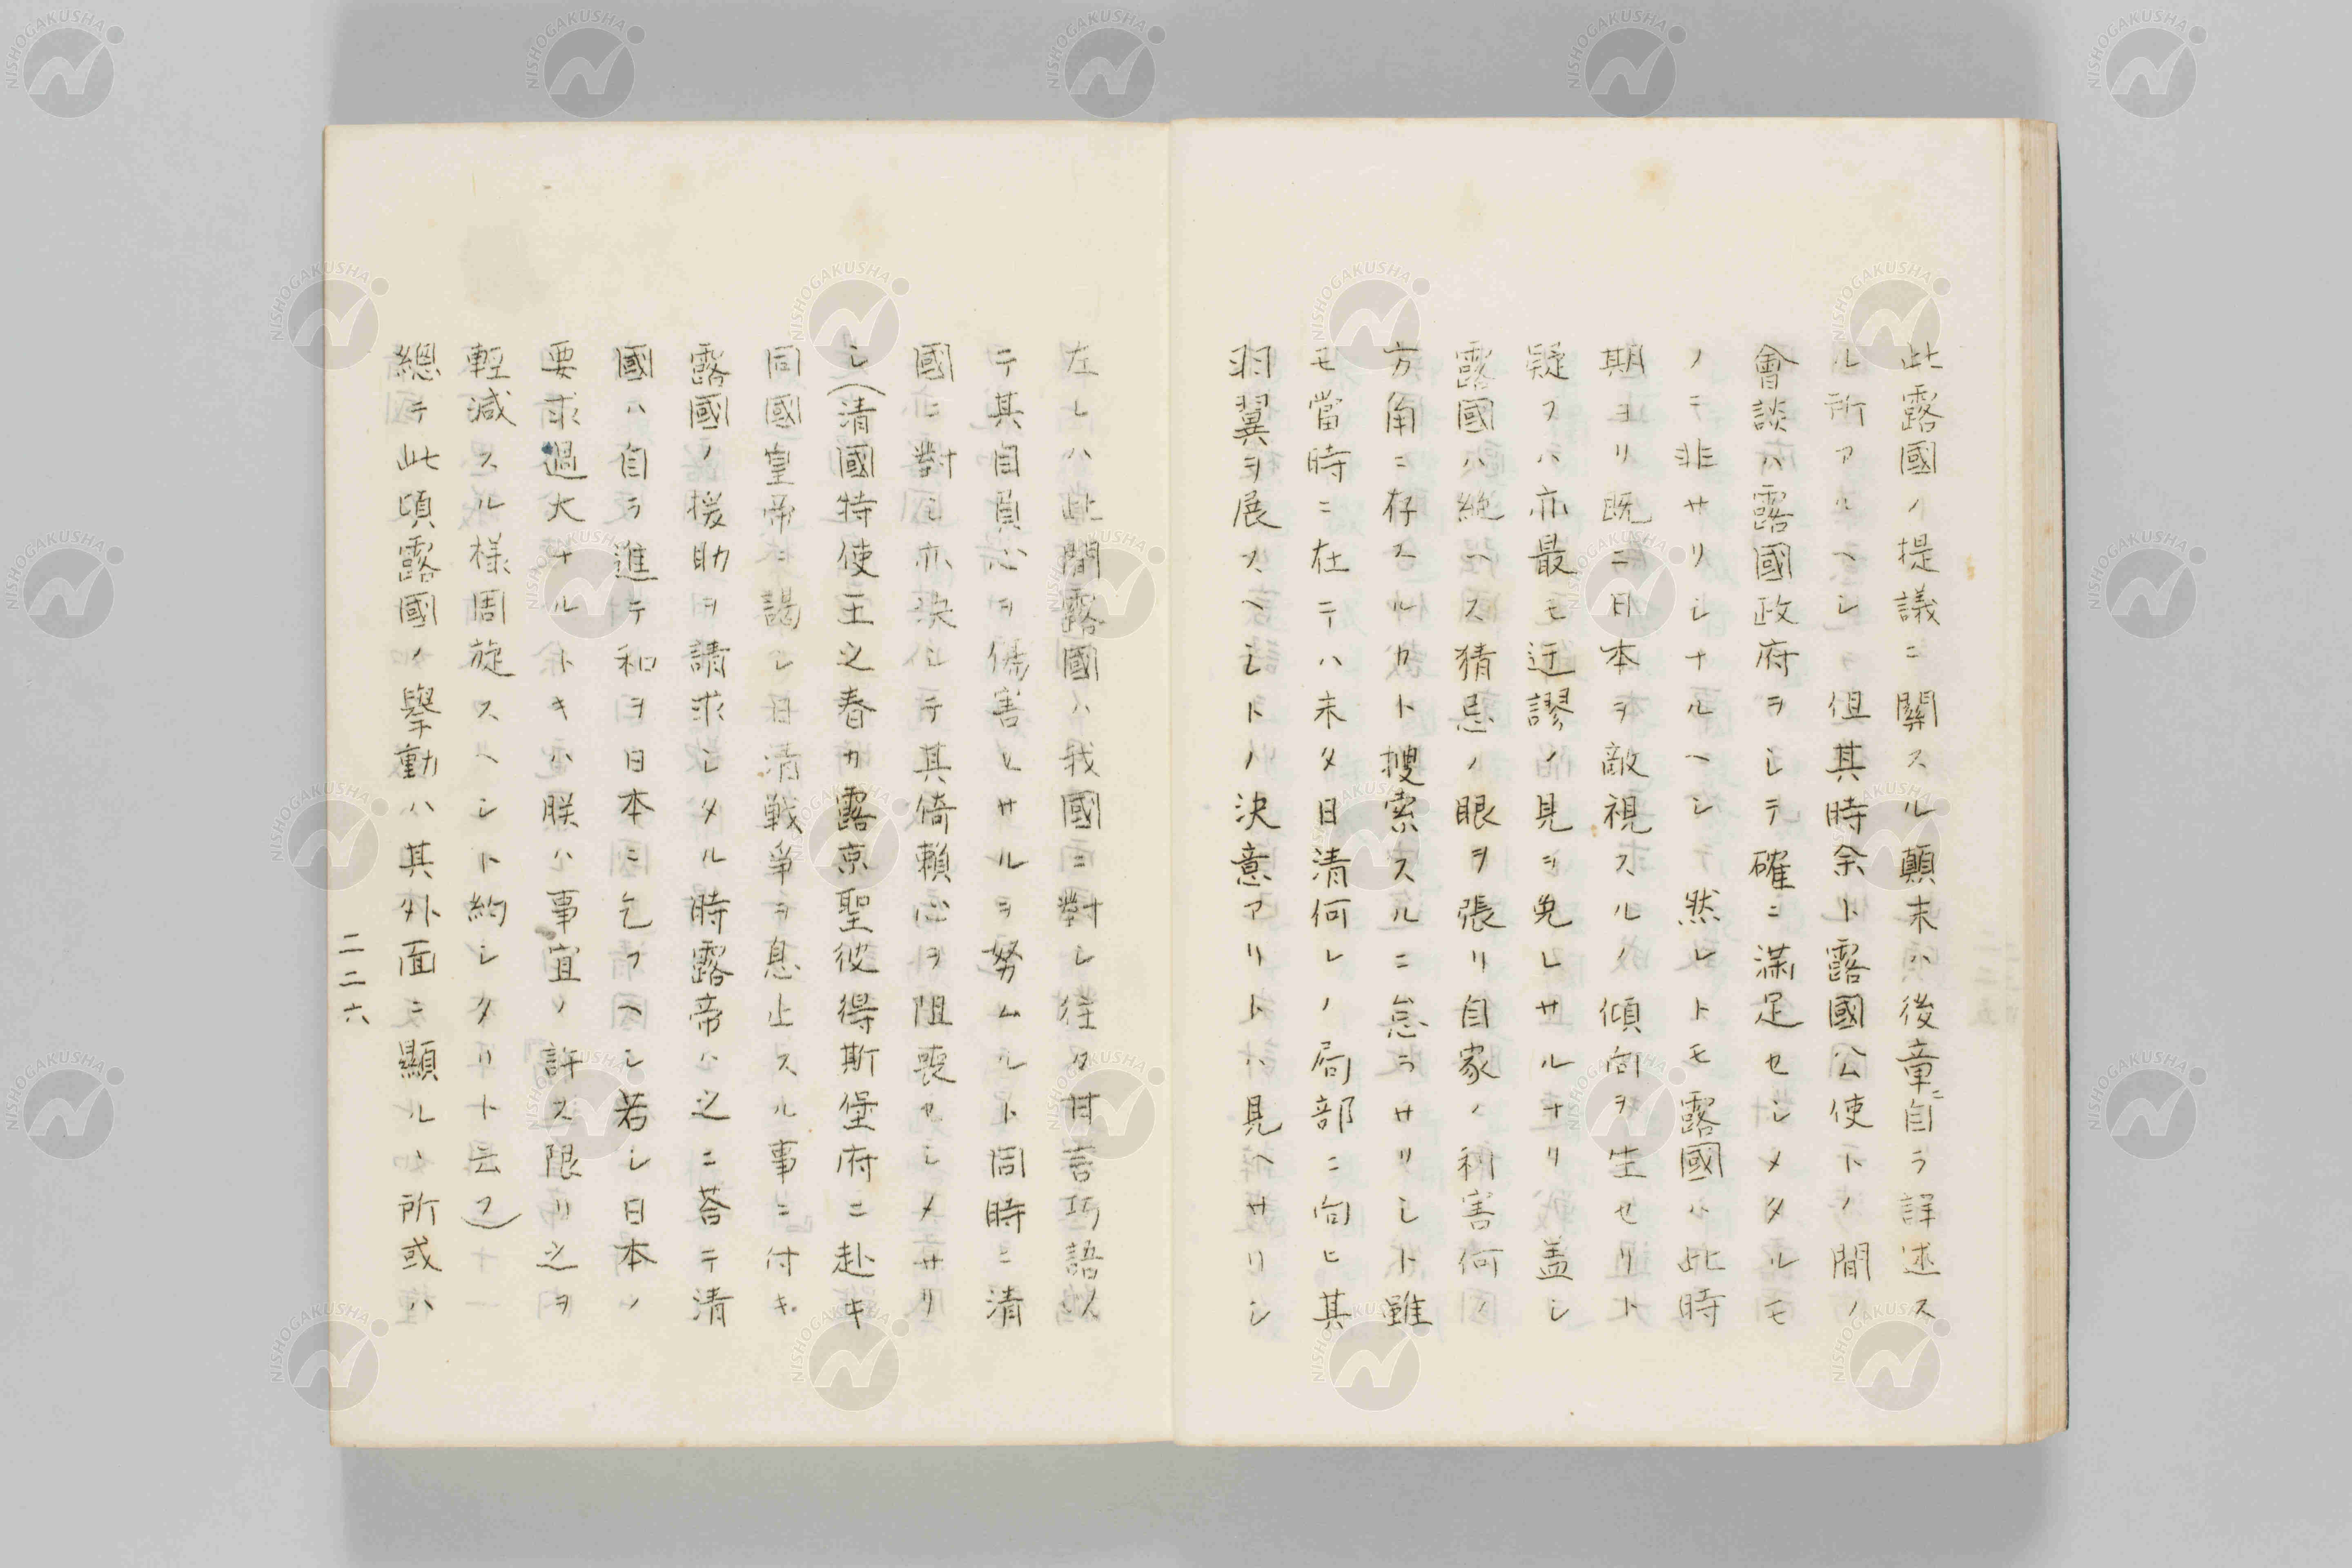 此露國ノ提議ニ關スル顛末ハ後章ニ自ラ詳述ス
ル所アルヘシ但其時余ト露國公使トノ間ノ
會談ハ露國政府ヲシテ確ニ滿足セシメタルモ
ノニ非サリシナルヘシ然レトモ露國ハ此時
期ヨリ既ニ日本ヲ敵視スルノ傾向ヲ生セリト
疑フハ亦最モ迂謬ノ見ヲ免レサルナリ盖シ
露國ハ絶ヘス猜忌ノ眼ヲ張リ自家ノ利害何ノ
方角ニ存スルカト搜索スルニ怠ラサリシト雖
モ當時ニ在テハ未タ日清何レノ局部ニ向ヒ其
羽翼ヲ展スヘシトノ決意アリトハ見ヘサリシ
左レハ此間露國ハ我國ニ對シ往々甘言巧語以
テ其自負心ヲ傷害セサルヲ努ムルト同時ニ清
國ニ對シ亦決シテ其倚賴心ヲ阻喪セシメサリ
シ(清國特使王之春カ露京聖彼得斯堡府ニ赴キ
同國皇帝ニ謁シ日清戰爭ヲ息止スル事ニ付キ
露國ノ援助ヲ請求シタル時露帝ハ之ニ荅テ清
國ハ自ラ進テ和ヲ日本ニ乞フヘシ若シ日本ノ
要求過大ナルトキハ朕ハ事宜ノ許ス限リ之ヲ
輕減スル樣周旋スヘシト約シタリト云フ)
總テ此頃露國ノ擧動ハ其外面ニ顯ルヽ所或ハ
二二六
NISHOGAKUSHA